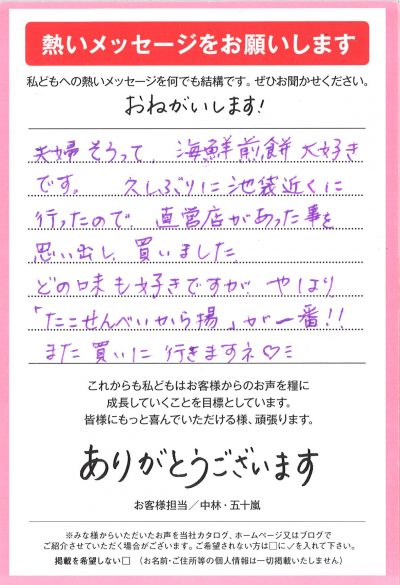 熱いメッセージをお願いします
私どもへの熱いメッセージを何でも結構です。ぜひお聞かせください。
おねがいします!
夫婦そろって、海鮮煎餅大好き
です。 久しぶりに池袋近くに
行ったので、直営店があった事を
思い出し、買いました
どの味も好きですが、やはり
「たこせんべいから揚」が一番!!
また買いに行きますネ♡ミ
これからも私どもはお客様からのお声を糧に
成長していくことを目標としています。
皆様にもっと喜んでいただける様、頑張ります。
ありがとうございます
お客様担当/中林・五十嵐
※みな様からいただいたお声を当社カタログ、ホームページ又はブログで
ご紹介させていただく場合がございます。ご希望されない方は□に✓を入れて下さい。
掲載を希望しない□ (お名前・ご住所等の個人情報は一切掲載いたしません)